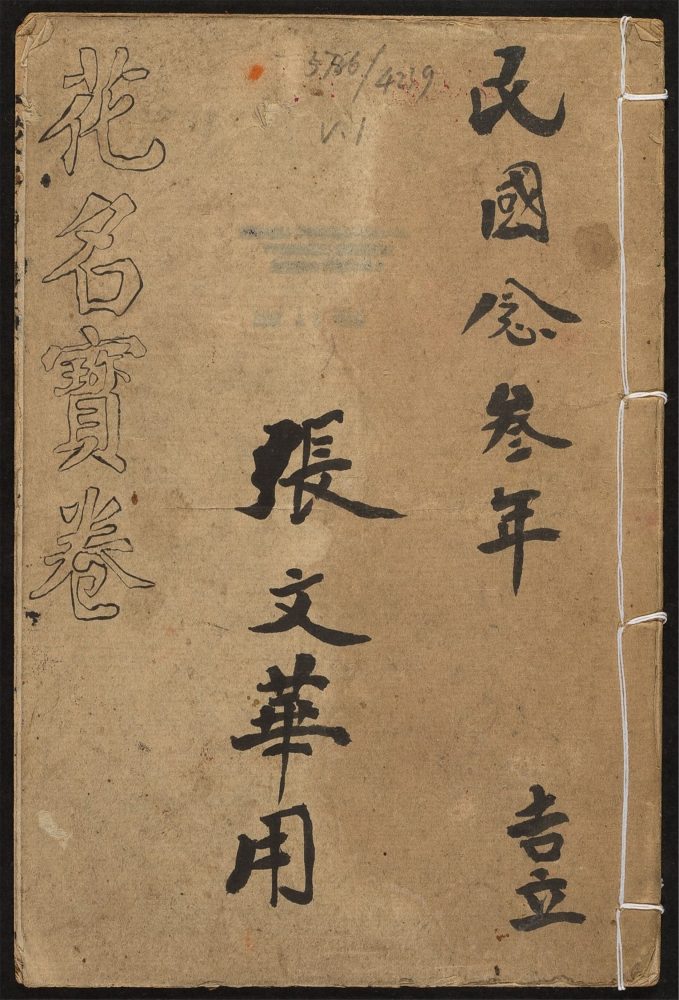 民國念叁年
吉立
張文華用
花名寶卷
5786/4239
V.1